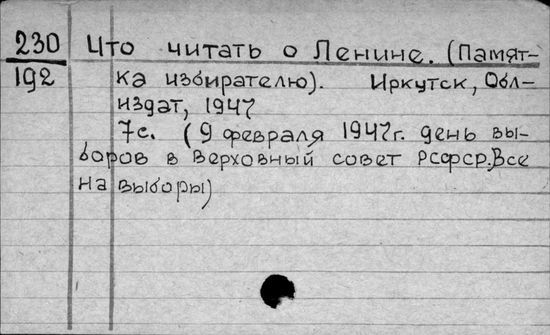 230 Что читать о Ленине. (Памят-
192 ка избирателю). Иркутск, Обл-
издат, 1947
7с. (9 февраля 1947г. день вы-
боров в Верховный совет РСФСР. Все
на выборы)